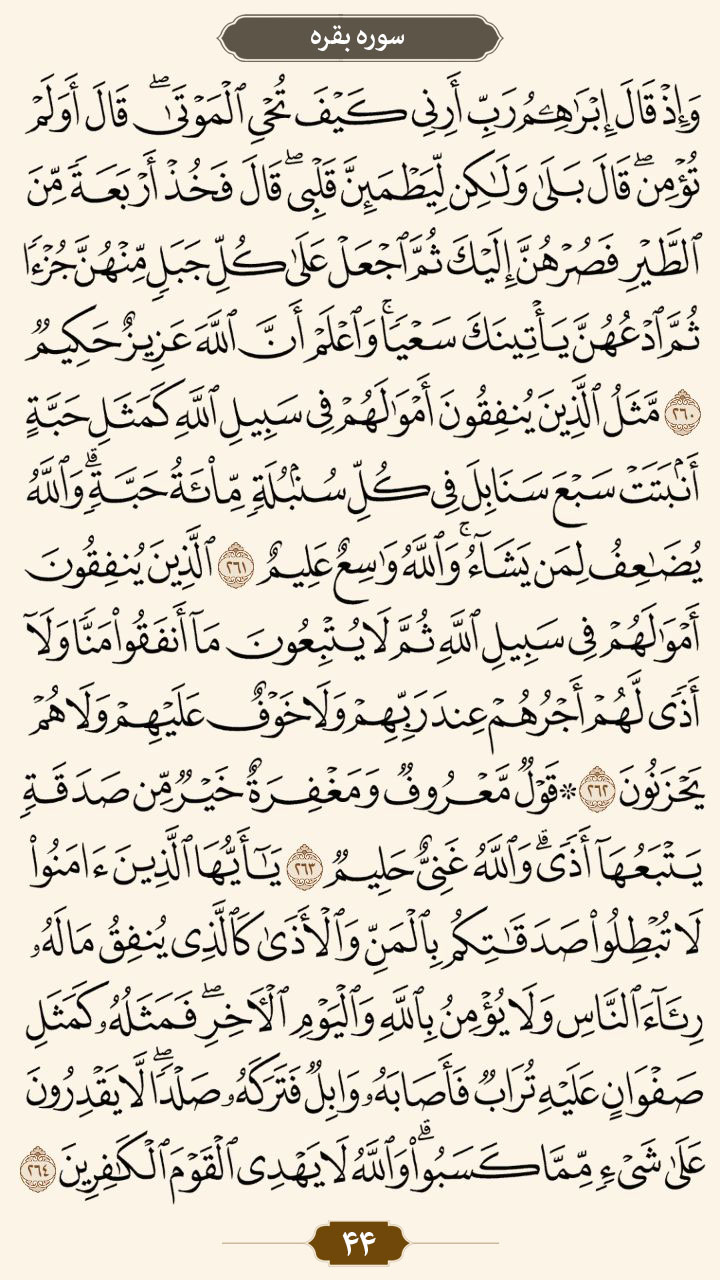 سوره بقره
وَإِذۡ قَالَ إِبۡرَٰهِـۧمُ رَبِّ أَرِنِي كَيۡفَ تُحۡيِ ٱلۡمَوۡتَىٰۖ قَالَ أَوَلَمۡ
تُؤۡمِنۖ قَالَ بَلَىٰ وَلَٰكِن لِّيَطۡمَئِنَّ قَلۡبِيۖ قَالَ فَخُذۡ أَرۡبَعَةٗ مِّنَ
ٱلطَّيۡرِ فَصُرۡهُنَّ إِلَيۡكَ ثُمَّ ٱجۡعَلۡ عَلَىٰ كُلِّ جَبَلٖ مِّنۡهُنَّ جُزۡءٗا
ثُمَّ ٱدۡعُهُنَّ يَأۡتِينَكَ سَعۡيٗاۚ وَٱعۡلَمۡ أَنَّ ٱللَّهَ عَزِيزٌ حَكِيمٞ
٢٦٠ مَّثَلُ ٱلَّذِينَ يُنفِقُونَ أَمۡوَٰلَهُمۡ فِي سَبِيلِ ٱللَّهِ كَمَثَلِ حَبَّةٍ
أَنۢبَتَتۡ سَبۡعَ سَنَابِلَ فِي كُلِّ سُنۢبُلَةٖ مِّاْئَةُ حَبَّةٖۗ وَٱللَّهُ
يُضَٰعِفُ لِمَن يَشَآءُۚ وَٱللَّهُ وَٰسِعٌ عَلِيمٌ ٢٦١ ٱلَّذِينَ يُنفِقُونَ
أَمۡوَٰلَهُمۡ فِي سَبِيلِ ٱللَّهِ ثُمَّ لَا يُتۡبِعُونَ مَآ أَنفَقُواْ مَنّٗا وَلَآ
أَذٗى لَّهُمۡ أَجۡرُهُمۡ عِندَ رَبِّهِمۡ وَلَا خَوۡفٌ عَلَيۡهِمۡ وَلَا هُمۡ
يَحۡزَنُونَ ٢٦٢ ۞ قَوۡلٞ مَّعۡرُوفٞ وَمَغۡفِرَةٌ خَيۡرٞ مِّن صَدَقَةٖ
يَتۡبَعُهَآ أَذٗىۗ وَٱللَّهُ غَنِيٌّ حَلِيمٞ ٢٦٣ يَٰٓأَيُّهَا ٱلَّذِينَ ءَامَنُواْ
لَا تُبۡطِلُواْ صَدَقَٰتِكُم بِٱلۡمَنِّ وَٱلۡأَذَىٰ كَٱلَّذِي يُنفِقُ مَالَهُۥ
رِئَآءَ ٱلنَّاسِ وَلَا يُؤۡمِنُ بِٱللَّهِ وَٱلۡيَوۡمِ ٱلۡأٓخِرِۖ فَمَثَلُهُۥ كَمَثَلِ
صَفۡوَانٍ عَلَيۡهِ تُرَابٞ فَأَصَابَهُۥ وَابِلٞ فَتَرَكَهُۥ صَلۡدٗاۖ لَّا يَقۡدِرُونَ
عَلَىٰ شَيۡءٖ مِّمَّا كَسَبُواْۗ وَٱللَّهُ لَا يَهۡدِي ٱلۡقَوۡمَ ٱلۡكَٰفِرِينَ ٢٦٤
۴۴